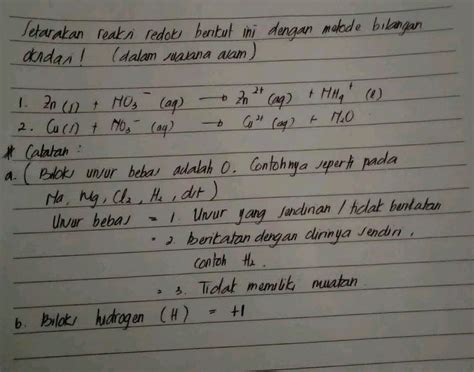 Setarakan reaksi redoks berikut ini dengan metode bilangan
oksidasi! (dalam suasana asam)
1. Zn (s) + NO₃⁻ (aq) → Zn²⁺ (aq) + NH₄⁺ (l)
2. Cu (s) + NO₃⁻ (aq) → Cu²⁺ (aq) + N₂O
* Catatan :
a. ( Biloks unsur bebas adalah 0. Contohnya seperti pada
Na, Mg, Cl₂, H₂, dst)
Unsur bebas = 1. Unsur yang sendirian / tidak berikatan
= 2. berikatan dengan dirinya sendiri,
contoh H₂.
= 3. Tidak memiliki muatan
b. Biloks hidrogen (H) = +1